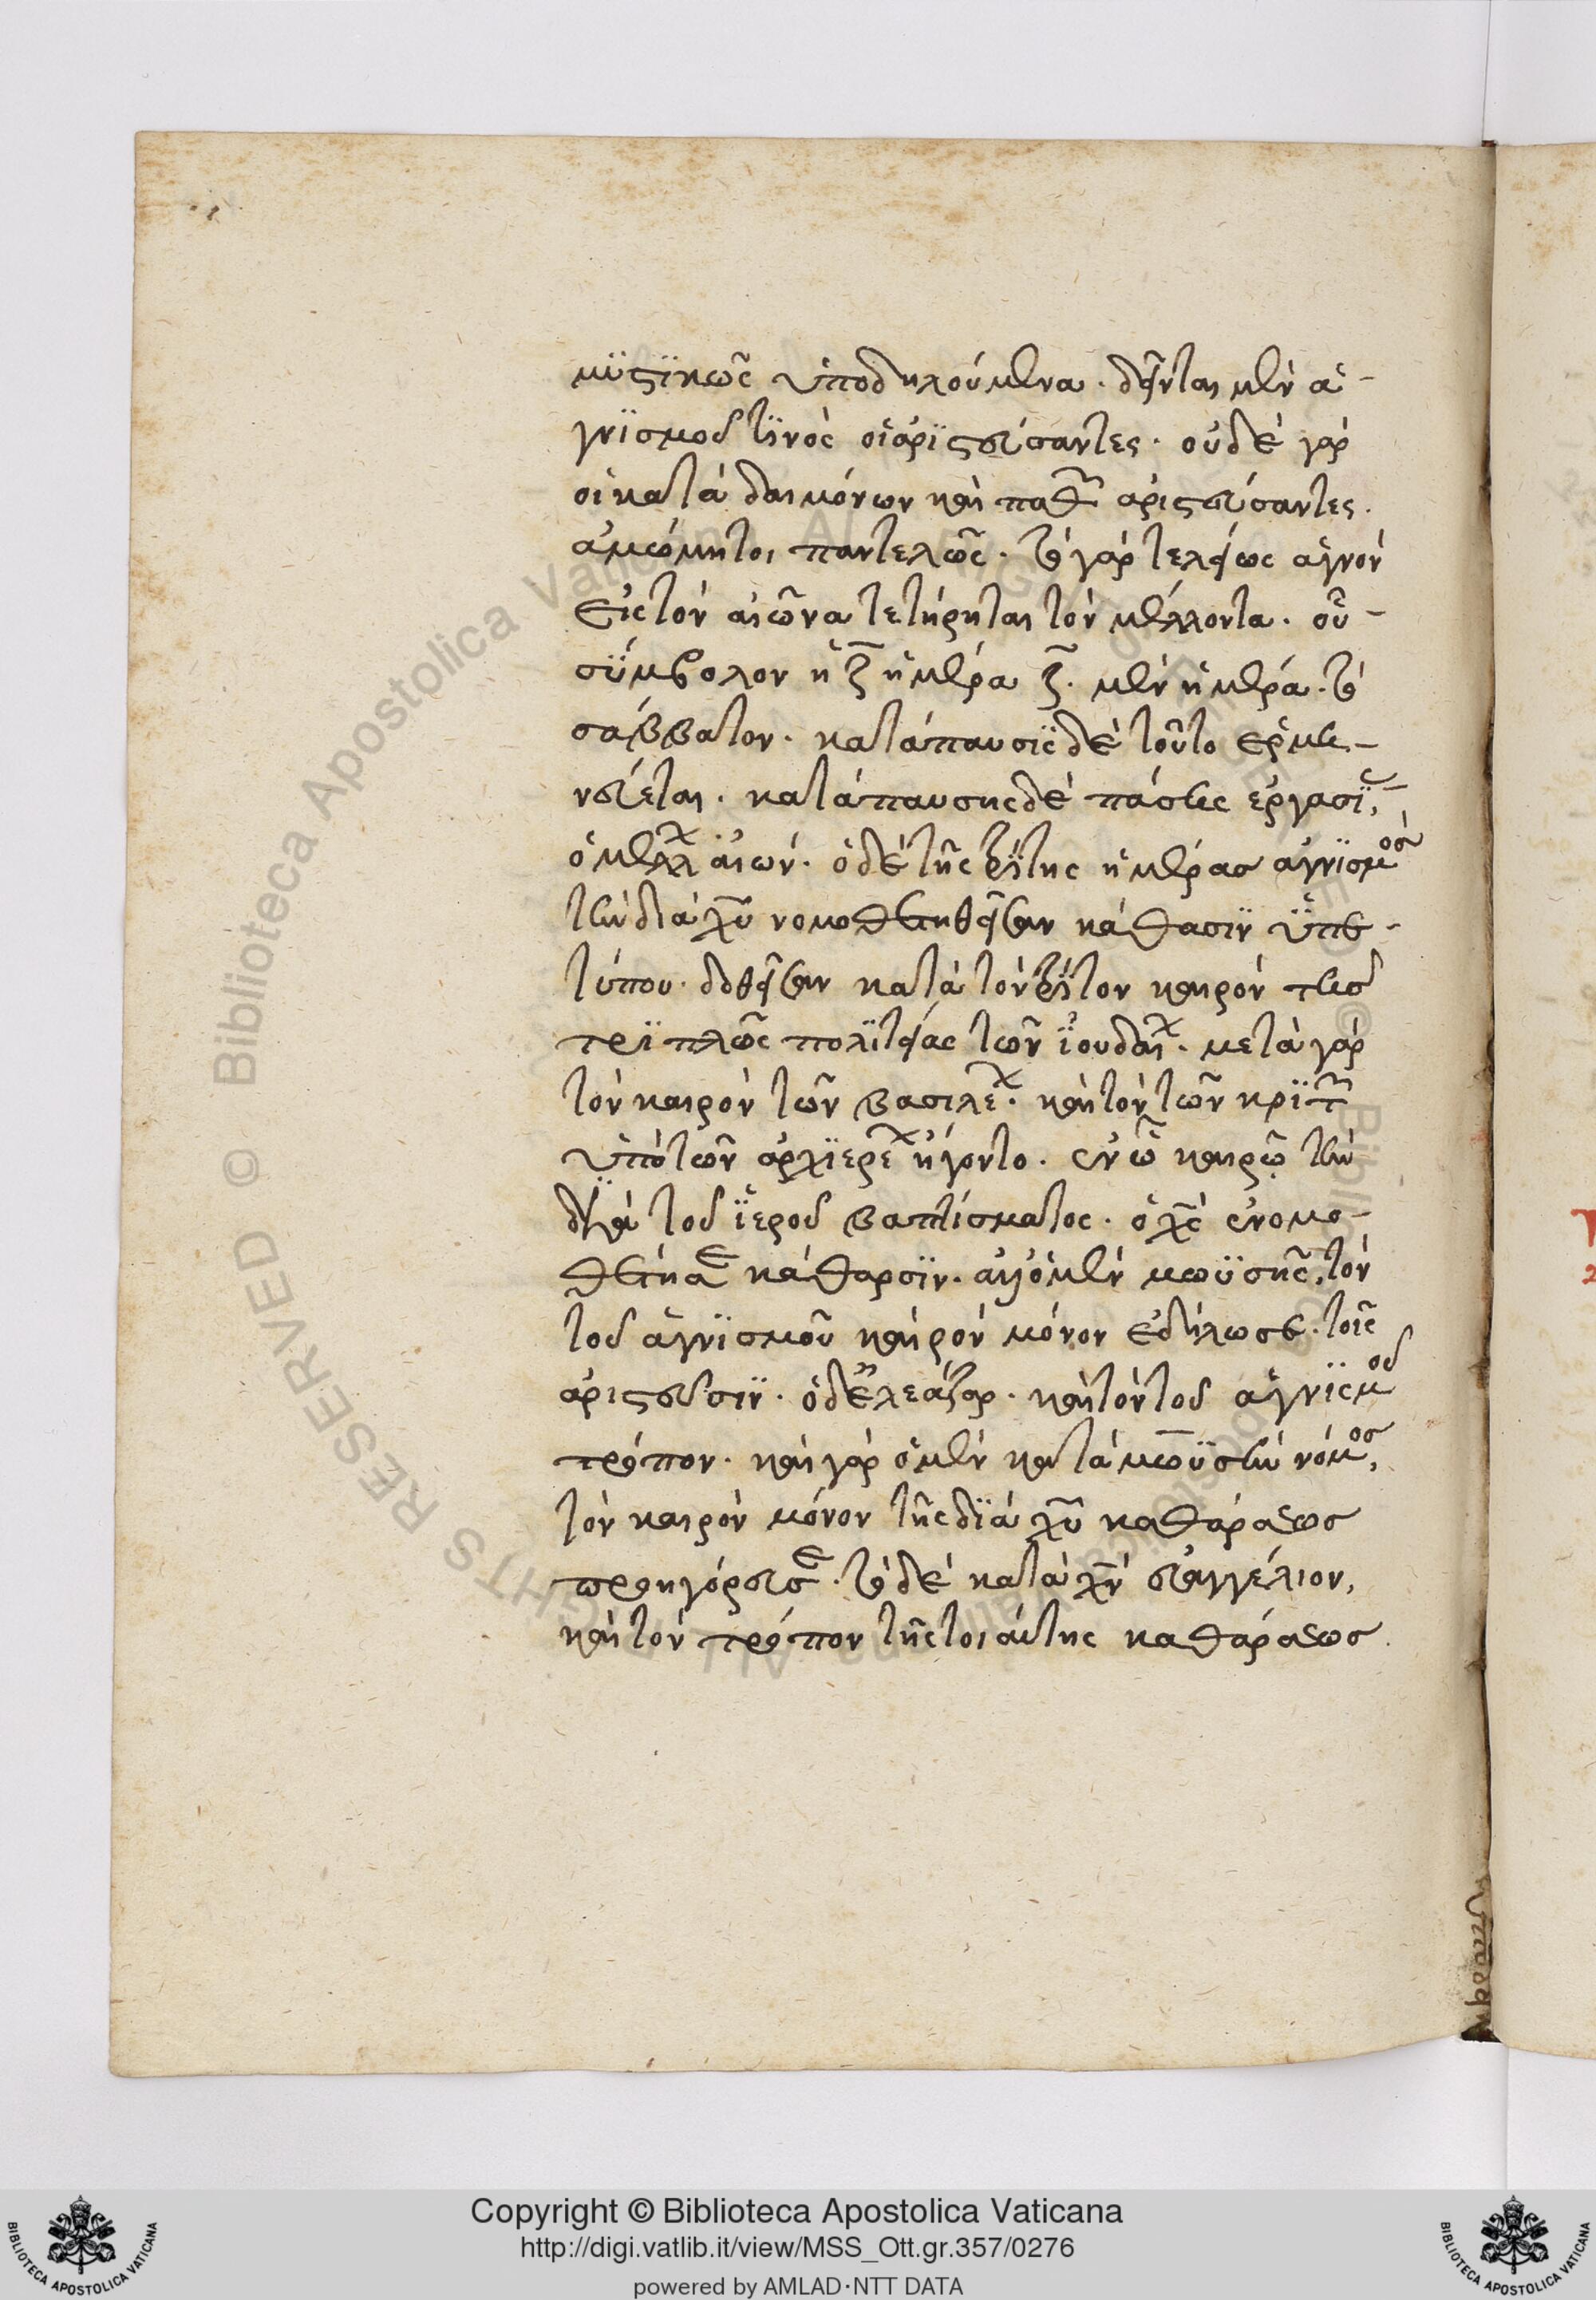 μϋστϊκῶς ὑποδηλούμενα. δεῖνται μὲν ἁ-
γνϊσμοῦ τϊνὸς οἱ ἀρϊστεύσαντες. οὐδὲ γὰρ
οἱ κατὰ δαιμόνων καὶ παθ῀ ἀριστεύσαντες.
ἀμώμητοι παντελῶς. τὸ γὰρ τελείως ἁγνὸν
εἰς τὸν αἰῶνα τετήρηται τὸν μέλλοντα. οὗ-
σϋμβολον ἡ ζ̄ ἡμέρα ζ̄. μὲν ἡμέρα. τὸ
σάββατον. κατάπαυσϊς δὲ τοῦτο ἑρμη-
νεύεται. κατάπαυσης δὲ πάσης ἐργασϊ,
ὁ μέλλ αἰών. ὁ δὲ τῆς τρίτης ἡμέρας ἁγνϊσμὸς
τὴν διὰ χυ νομοθετηθεῖσαν κάθασϊν ὑπε-
τύπου. δοθεῖσαν κατὰ τὸν τρίτον καιρὸν τῆς
τρϊπλῶς πολϊτείας τῶν ἰουδαι. μετὰ γὰρ
τὸν καιρὸν τῶν βασιλε. καὶ τὸν τῶν κρϊτ
ὑπὸ τῶν ἀρχϊερε ἤγοντο. ἐν ᾧ καιρῷ τὴν
διὰ τοῦ ϊεροῦ βαπτίσματος. ὁ χς ἐνομο-
θέτησε κάθαρσϊν. ἀλλ' ὁ μὲν μωϋσῆς, τὸν
τοῦ ἁγνϊσμοῦ καιρὸν μόνον ἐδήλωσε. τοῖς
ἀριστεῦσϊν. ὁ δ' ἐλεάζαρ. καὶ τὸν τοῦ ἁγνϊσμοῦ
τρόπον. καὶ γὰρ ὁ μὲν κατὰ μωϋσὴν νόμος,
τὸν καιρὸν μόνον τῆς δϊὰ χυ καθάρσεως
προηγόρευσε. τὸ δὲ κατὰ χν εὐαγγέλιον,
καὶ τὸν τρόπον τῆς τοιαύτης καθάρσεως.
Copyright © Biblioteca Apostolica Vaticana
http://digi.vatlib.it/view/MSS_Ott.gr.357/0276
powered by AMLAD·NTT DATA